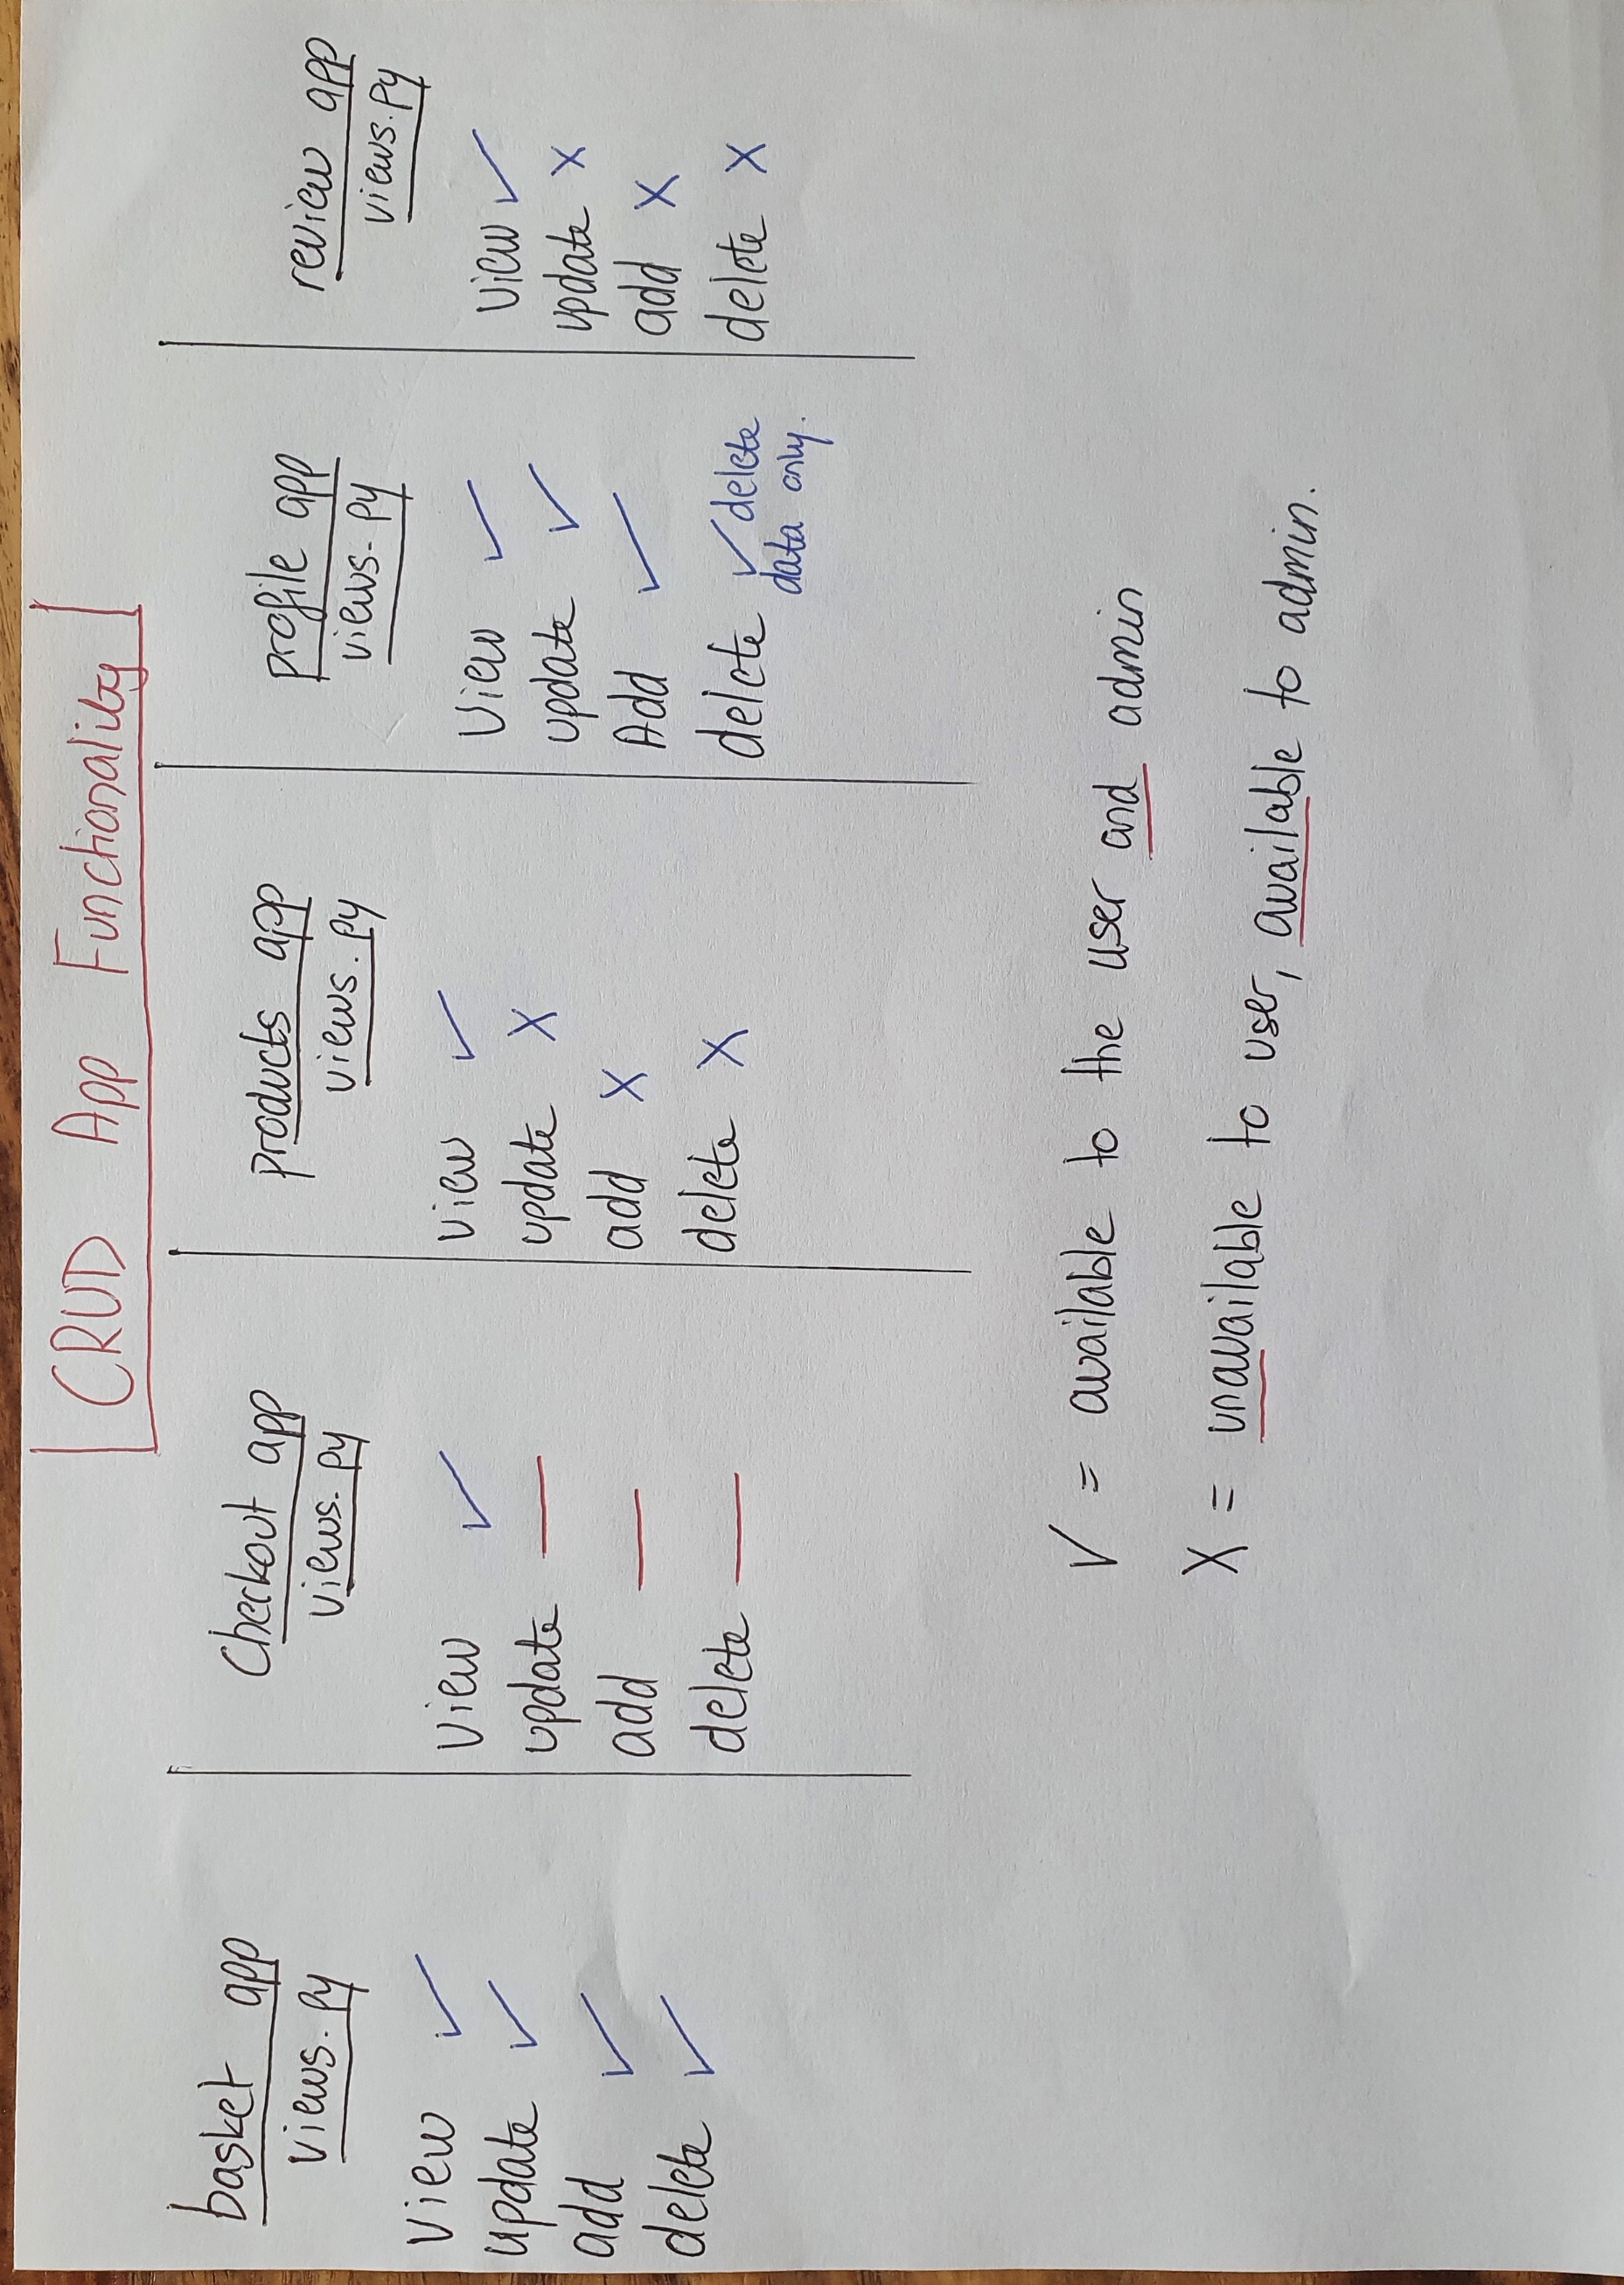 CRUD App Functionality
basket app
views.py
view ✓
update ✓
add ✓
delete ✓
Checkout app
views.py
view ✓
update —
add —
delete —
products app
views.py
view ✓
update X
add X
delete X
profile app
views.py
view ✓
update ✓
Add ✓
delete ✓ delete
data only.
review app
views.py
view ✓
update X
add X
delete X
✓ = available to the user and admin
X = unavailable to user, available to admin.